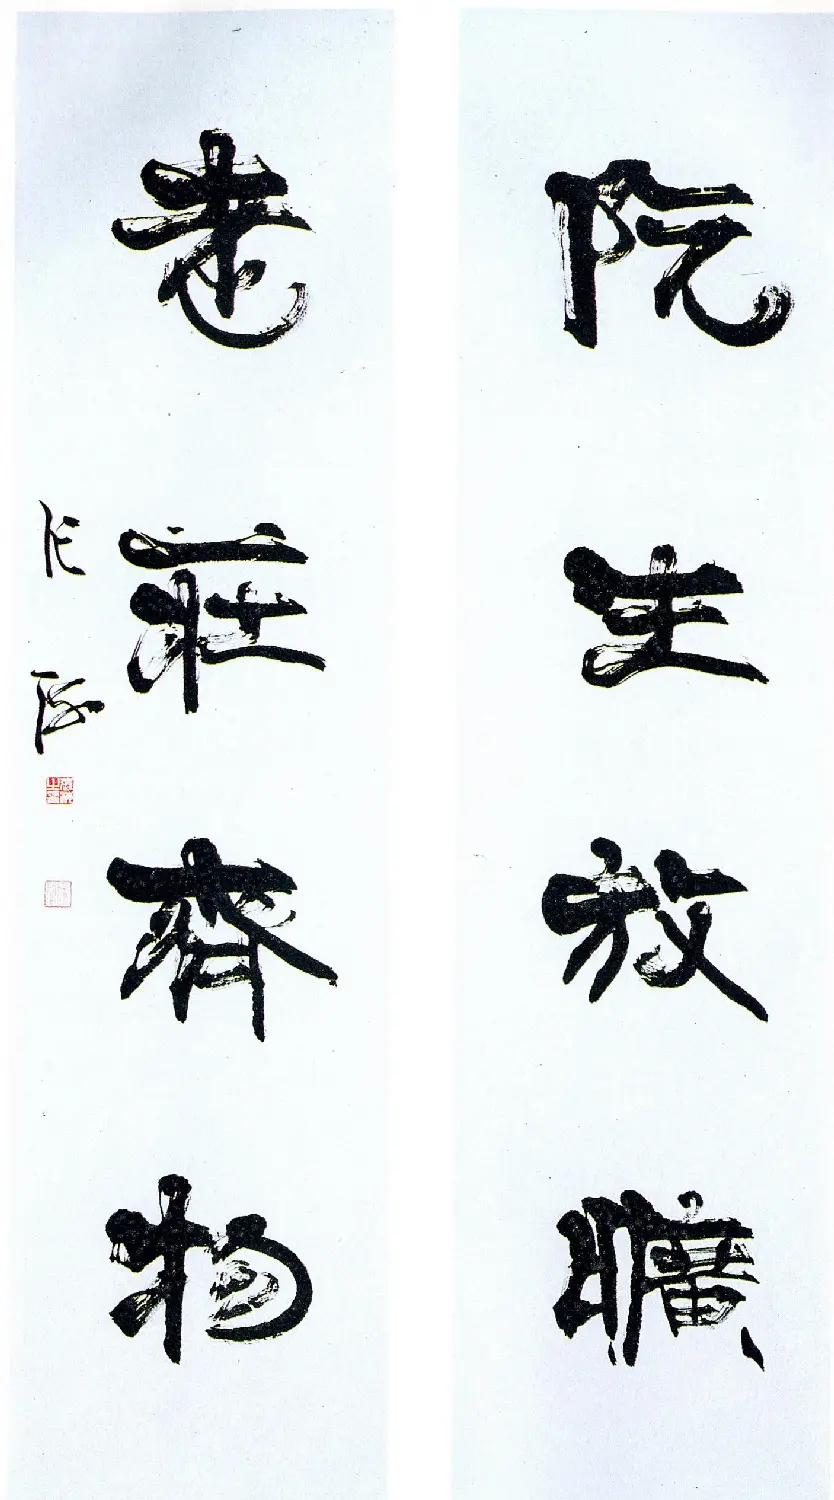 阮生放曠
老莊齊物
张海